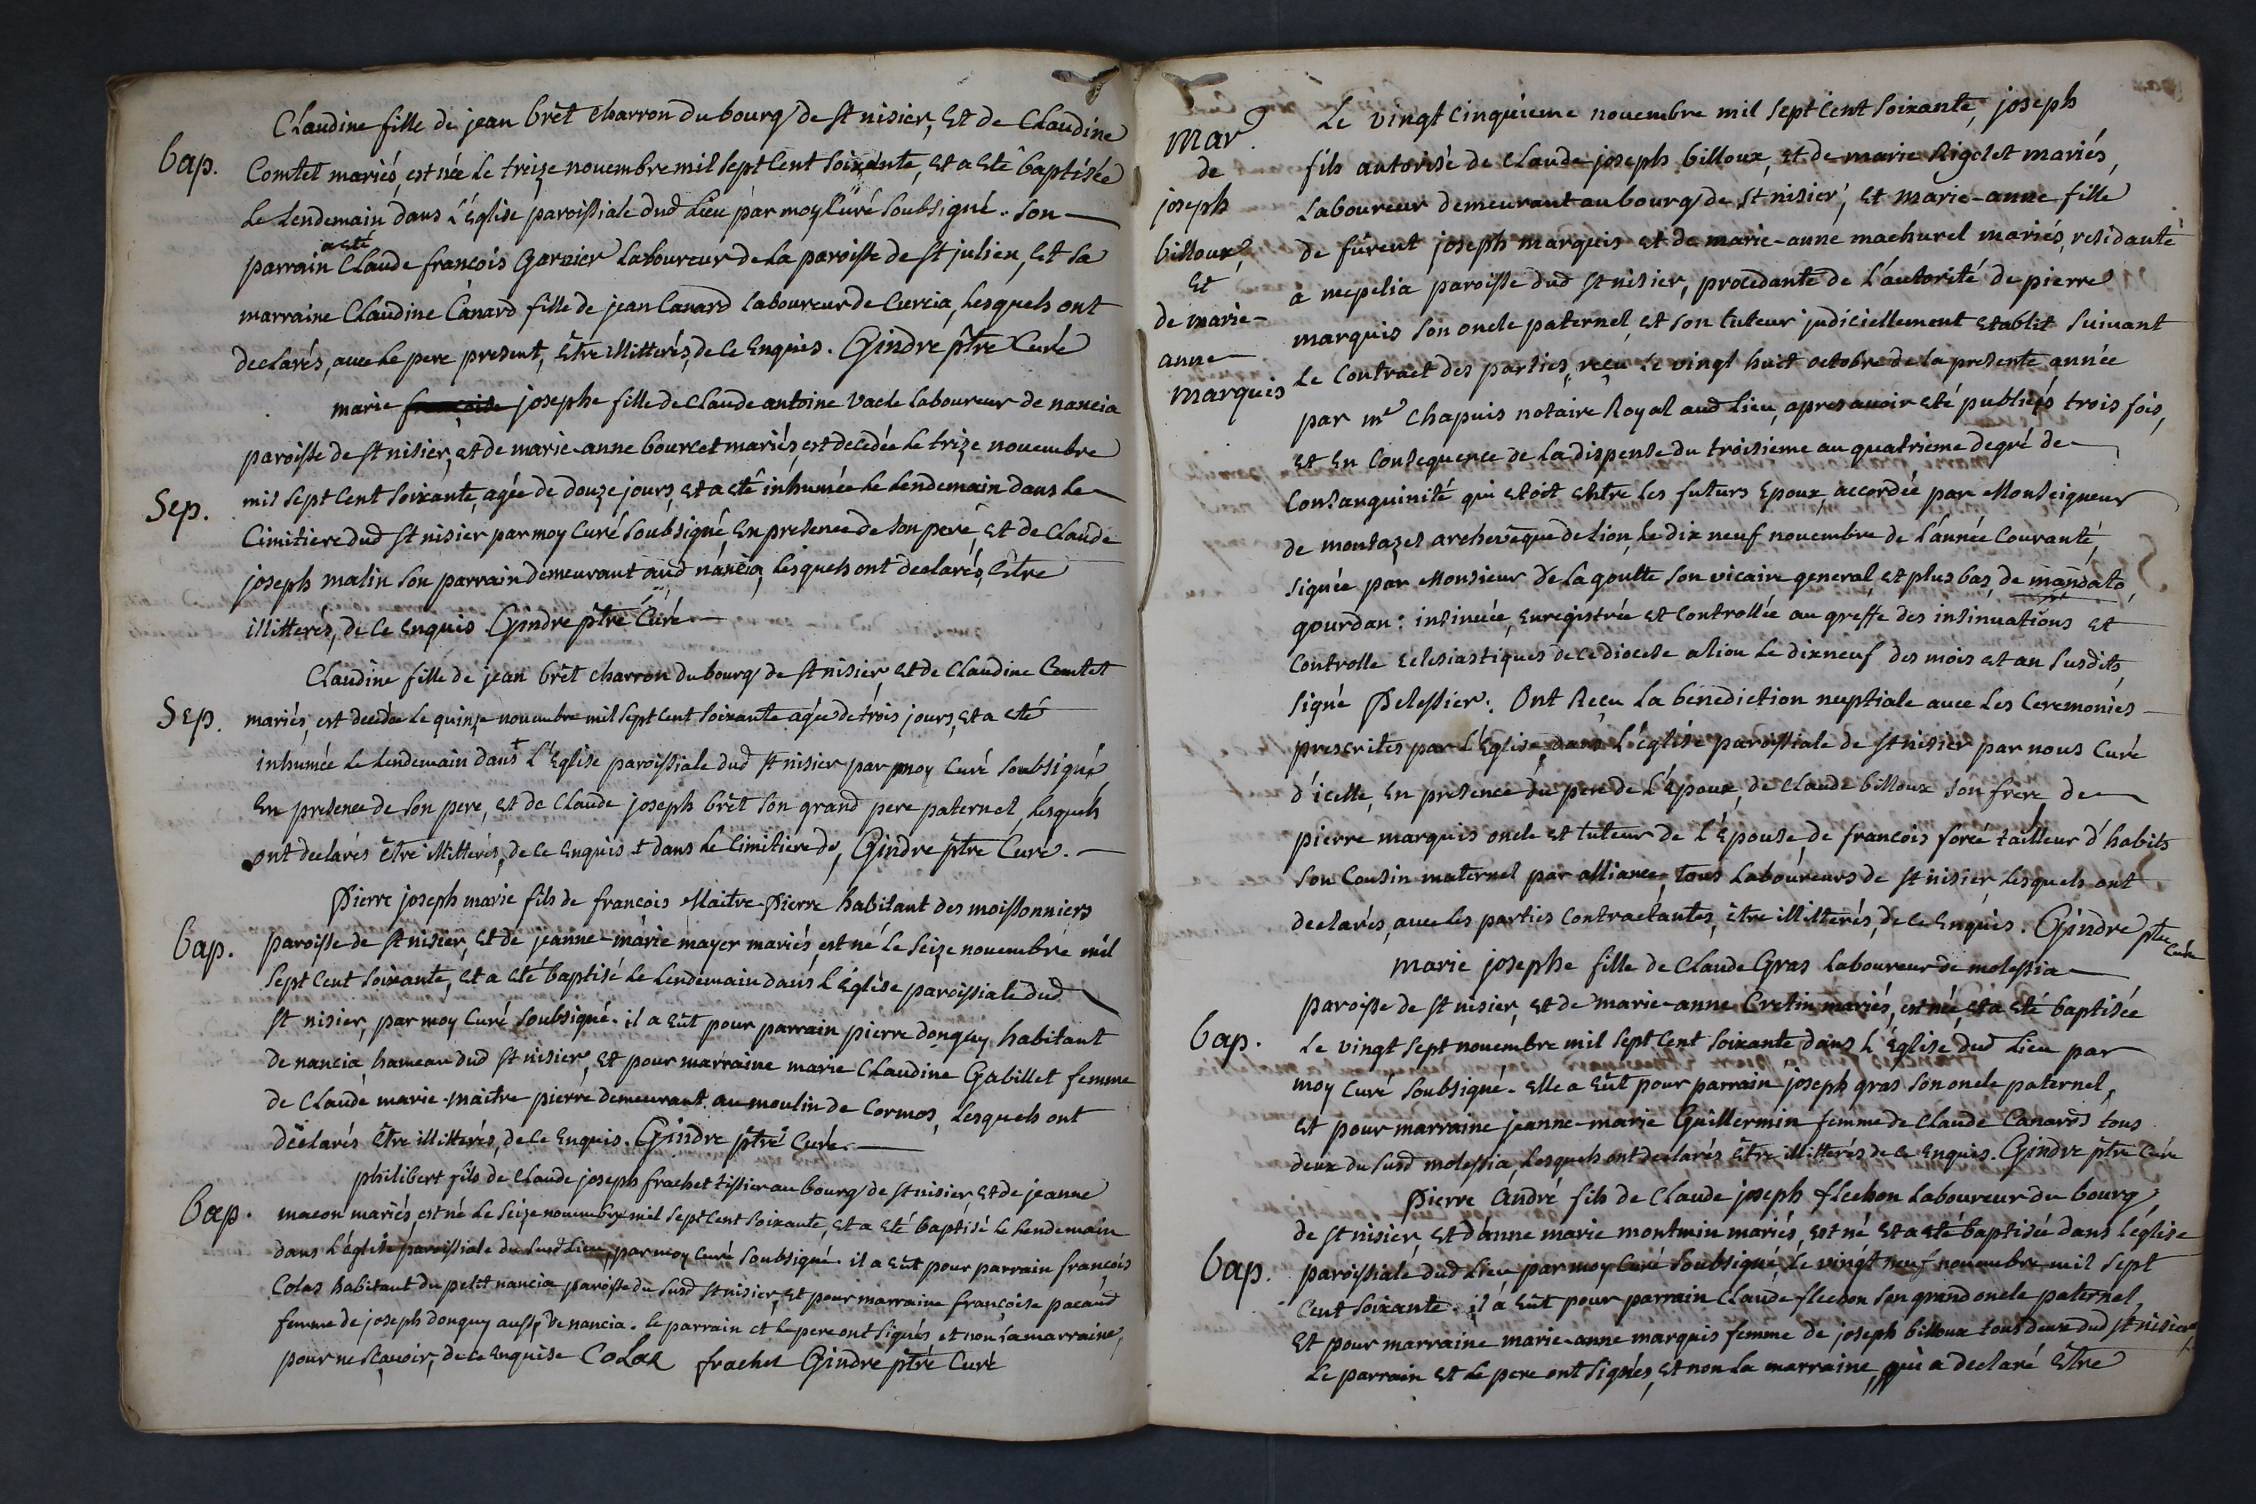 Claudine fille de jean brêt charron du bourg de st nisier, Et de Claudine
bap.
Comtet mariés, est née le treize novembre mil sept cent soixante, et a eté baptisée
le lendemain dans l'Eglise paroissiale dud lieu par moy Curé soubsigné. son
a eté
parrain Claude francois Garnier laboureur de la paroisse de st julien, et sa
marraine Claudine Canard fille de jean Canard laboureur de Curcia, lesquels ont
declarés, avec le pere present, être illitterés, de ce enquis. Gindre ptre Curé
marie francoise josephe fille de Claude antoine vacle laboureur de nancia
paroisse de st nisier, et de marie-anne bourcet mariés, est decedée le trize novembre
Sep.
mil sept cent soixante, agée de douze jours, et a eté inhumée le lendemain dans le
Cimitiere dud st nisier par moy Curé soubsigné en presence de son pere, et de Claude
joseph malin son parrain demeurant aud nancia, lesquels ont declarés, être
illitterés, de ce enquis Gindre ptre Curé
Claudine fille de jean brêt charron du bourg de st nisier, et de Claudine Comtet
Sep.
mariés, est decedée le quinze novembre mil sept cent soixante agée de trois jours, et a eté
inhumée le lendemain dans + l'Eglise paroissiale dud st nisier par moy Curé soubsigné
En presence de son pere, et de Claude joseph brêt son grand pere paternel, lesquels
ont declarés être illitterés, de ce enquis + dans le cimitiere de, Gindre ptre Curé.
Pierre joseph marie fils de francois Maitre-Pierre habitant des moissonniers
bap.
paroisse de st nisier, et de jeanne-marie mayer mariés, est né le seize novembre mil
sept cent soixante, et a eté baptisé le lendemain dans l'église paroissiale dud
st nisier, par moy Curé soubsigné. il a eût pour parrain pierre donguy habitant
de nancia, hameau dud st nisier, et pour marraine marie Claudine Gabillet femme
de Claude marie-maitre pierre demeurant au moulin de Cormos, lesquels ont
déclarés être illitterés, de ce enquis. Gindre ptre Curé.
philibert fils de Claude joseph frachet tissier au bourg de st nisier, et de jeanne
bap.
macon mariés, est né le seize novembre mil sept cent soixante, et a eté baptisé le lendemain
dans l'église paroissiale du susd lieu, par moy Curé soubsigné. il a eût pour parrain francois
Colas habitant du petit nancia paroisse du susd st nisier, et pour marraine francoise pacaud
femme de joseph donguy aussy de nancia. le parrain et le pere ont signés et non la marraine,
pour ne scavoir, de ce enquise Colas frachet Gindre ptre Curé
Mar.
de
joseph
billoux,
Et
de marie-
anne
Marquis
Le vingt cinquieme novembre mil sept cent soixante, joseph
fils autorisé de Claude joseph billoux, et de marie Rigolet mariés,
laboureur demeurant au bourg de st nisier, et marie-anne fille
de fûrent joseph marquis et de marie-anne machurel mariés, residante
a mepelia paroisse dud st nisier, procedante de l'autorité de pierre
marquis son oncle paternel et son tuteur judiciellement establit suivant
le contract des parties, reçu le vingt huit octobre de la presente année
par me Chapuis notaire Royal aud lieu, apres avoir eté publiés trois fois,
Et en consequence de la dispense du troisieme au quatrieme degré de
consanguinité qui etoit entre les futurs Epoux accordée par Monseigneur
de montazet archevêque de Lion, le dix neuf novembre de l'année courante,
signée par Monsieur De la goutte son vicaire general et plus bas, de mandato,
gourdan: insinuée, enregistrée et controllée au greffe des insinuations et
controlle Eclesiastiques de ce diocese a lion le dixneuf des mois et an susdits,
signé Pelessier. Ont Reçu la benediction nuptiale avec les ceremonies
prescrites par l'Eglise, dans l'église paroissiale de st nisier par nous Curé
d'icelle, en presence du pere de l'Epoux, de Claude billoux son frere, de
pierre marquis oncle et tuteur de l'Epouse, de francois forcé tailleur d'habits
son Cousin maternel par alliance, tous laboureurs de st nisier lesquels ont
declarés, avec les parties contractantes, être illitterés, de ce enquis. Gindre ptre Curé
Marie josephe fille de Claude Gras laboureur de molessia
paroisse de st nisier, et de marie-anne Cretin mariés, est née, et a eté baptisée
bap.
le vingt sept novembre mil sept cent soixante dans l'Eglise dud lieu par
moy Curé soubsigné. Elle a eût pour parrain joseph gras son oncle paternel,
et pour marraine jeanne-marie Guillermin femme de Claude Canard tous
deux du susd molessia, lesquels ont declarés être illitterés de ce enquis. Gindre ptre Curé
Pierre andré fils de Claude joseph flechon laboureur du bourg
de st nisier, et d'anne marie montmin mariés, est né et a eté baptisée dans l'église
bap.
paroissiale dud lieu par moy Curé soubsigné le vingt neuf novembre mil sept
cent soixante. il a eût pour parrain Claude flechon son grand oncle paternel,
Et pour marraine marie-anne marquis femme de joseph billoux tous deux dud st nisier
le parrain et le pere ont signés, et non la marraine, qui a declaré être